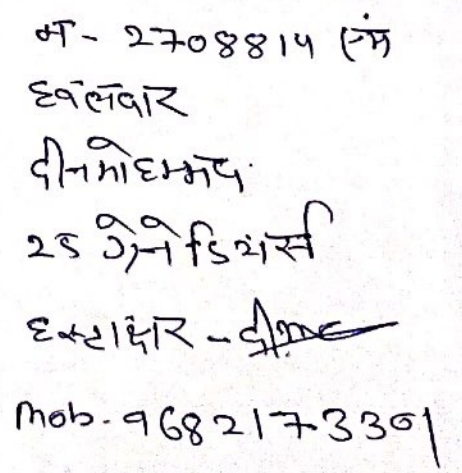 नं - 2708814 एम
हवलदार
दीनमोहम्मद
25 ग्रेनेडियर्स
हस्टाक्षर -
Mob. 9682173301